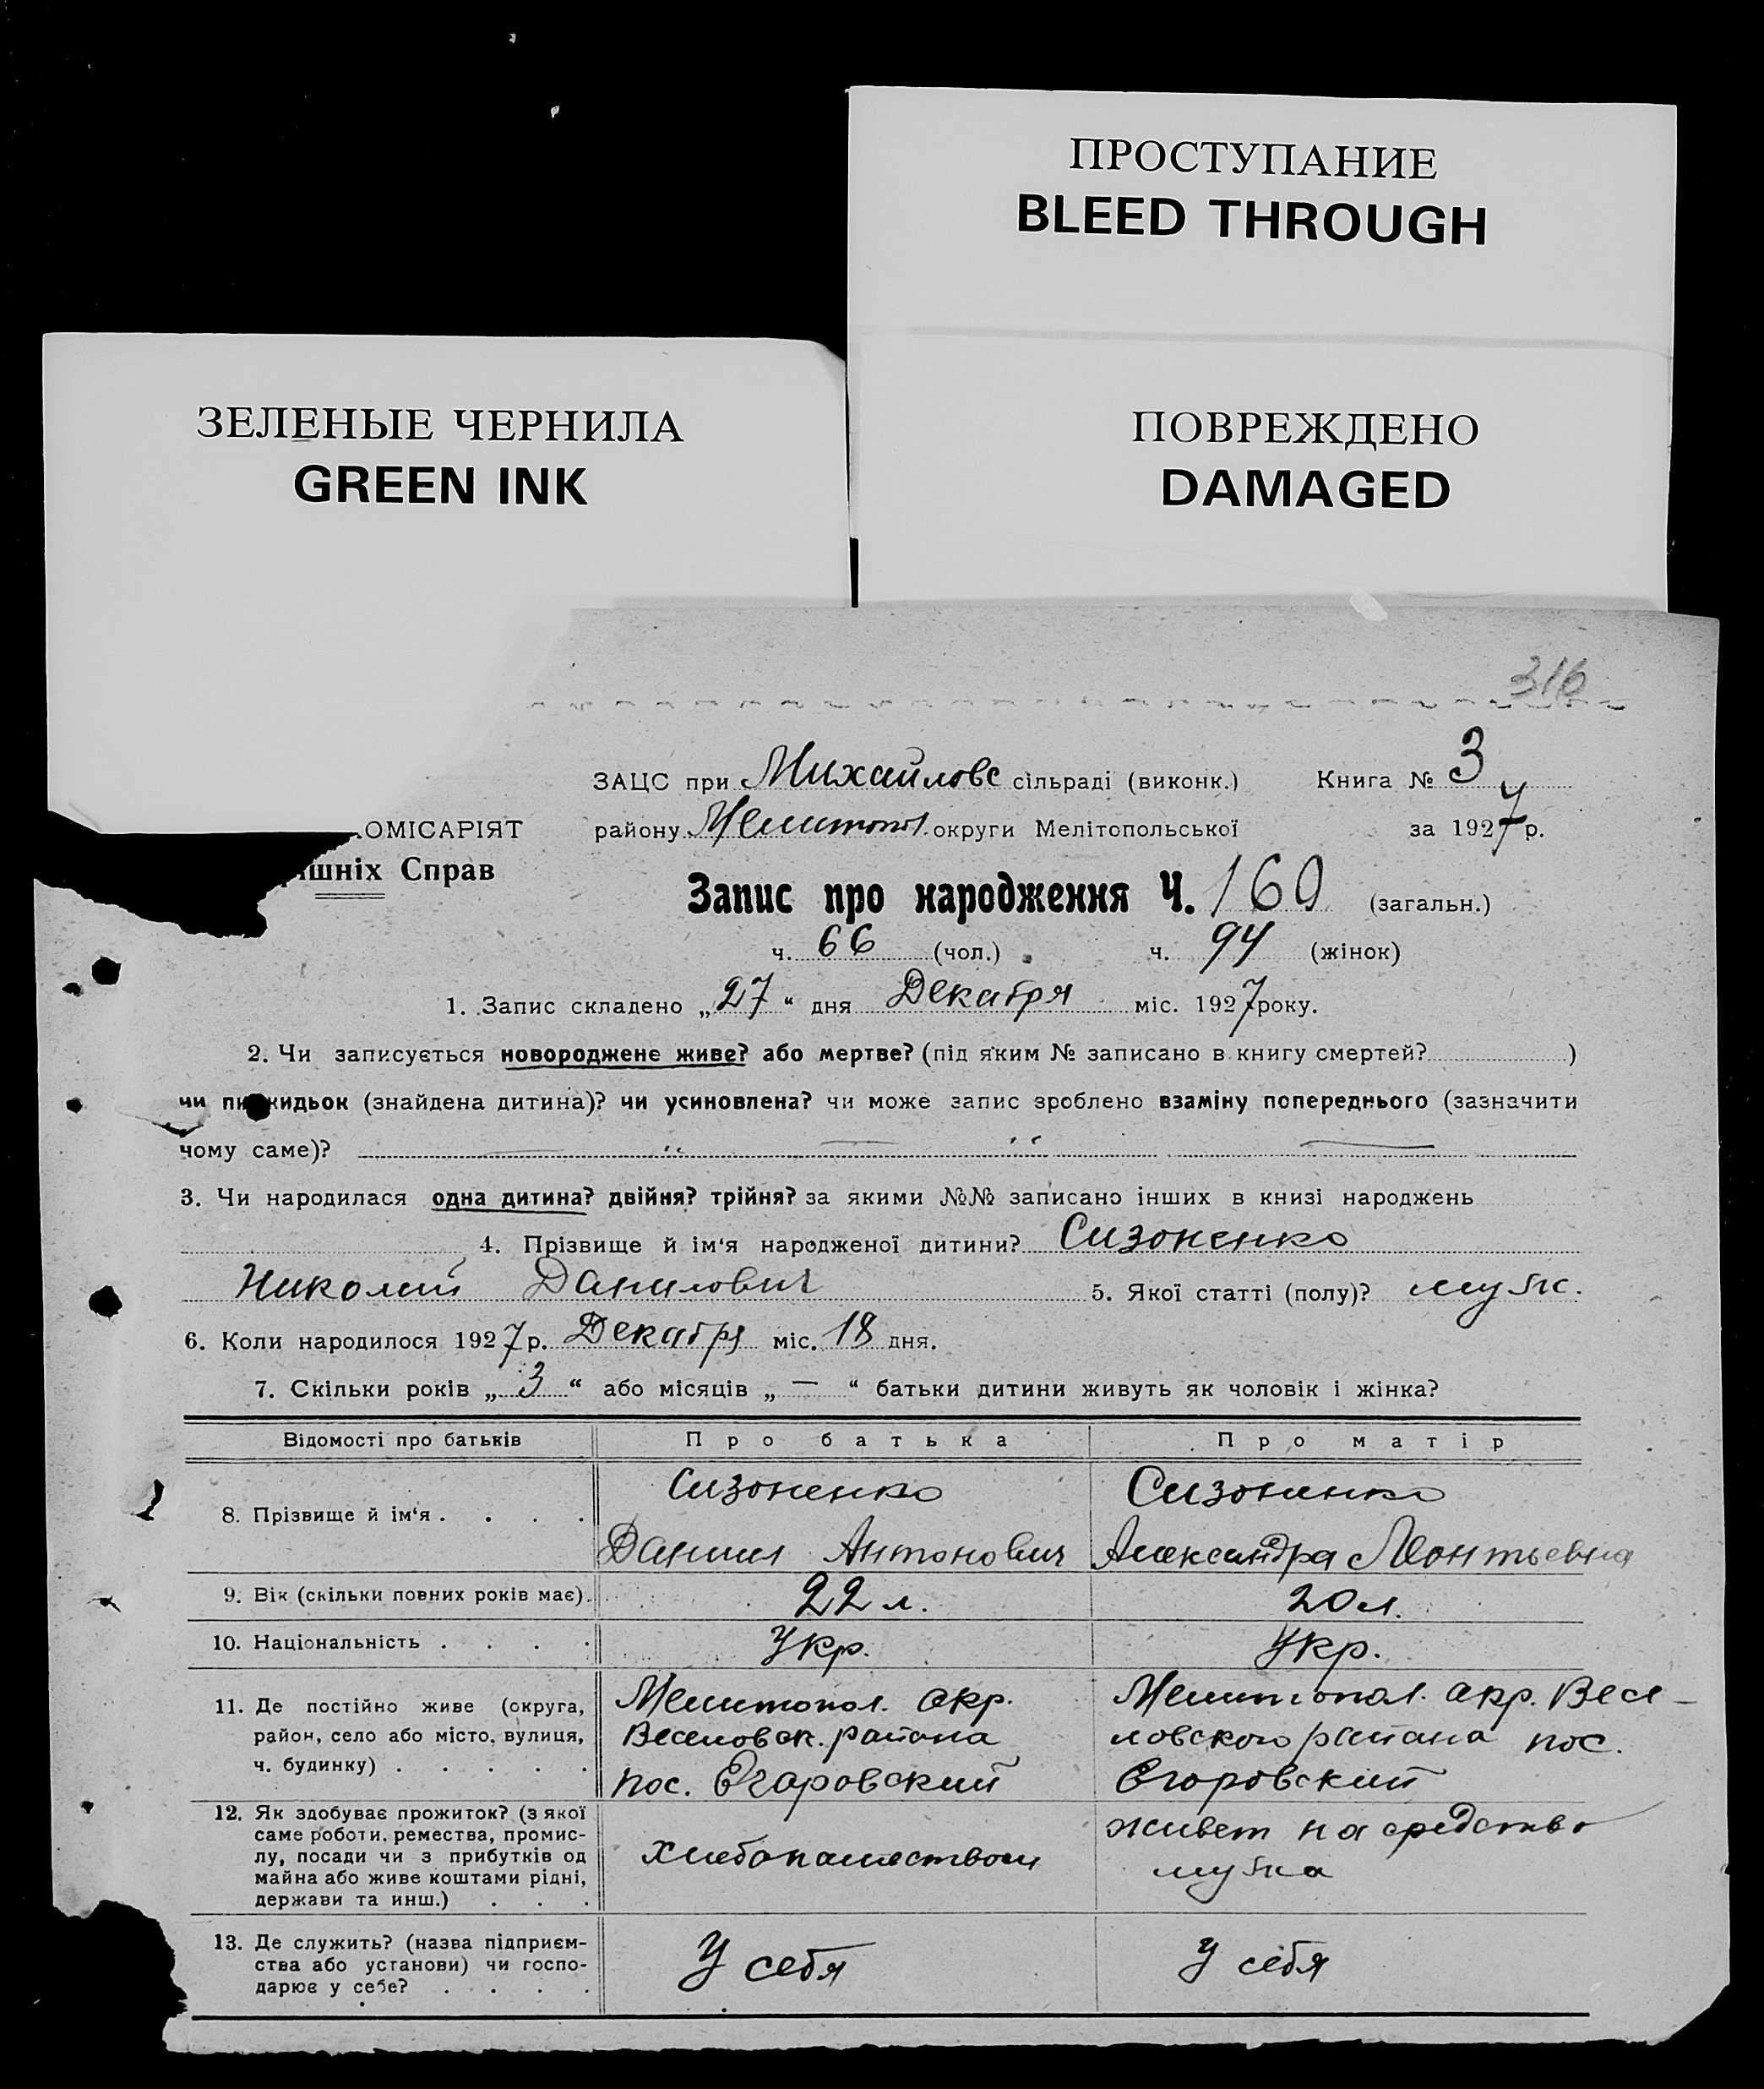 ПРОСТУПАНИЕ
BLEED THROUGH
ЗЕЛЕНЫЕ ЧЕРНИЛА
GREEN INK
ПОВРЕЖДЕНО
DAMAGED
316
ЗАЦС при Михайловс сільраді (виконк.) Книга № 3
ОМІСАРІЯТ району Мелитопол. округи Мелітопольської за 1927 р.
ішніх Справ
Запис про народження Ч. 160 (загальн.)
ч. 66 (чол.) ч. 94 (жінок)
1. Запис складено „27“ дня Декабря міс. 1927 року.
2. Чи записується новороджене живе? або мертве? (під яким № записано в книгу смертей? )
чи підкидьок (знайдена дитина)? чи усиновлена? чи може запис зроблено взаміну попереднього (зазначити
чому саме)? — „ — „ —
3. Чи народилася одна дитина? двійня? трійня? за якими №№ записано інших в книзі народжень
4. Прізвище й ім‘я народженої дитини? Сизоненко
Николай Данилович 5. Якої статті (полу)? муж.
6. Коли народилося 1927 р. Декабря міс. 18 дня.
7. Скільки років „3“ або місяців „—“ батьки дитини живуть як чоловік і жінка?
Відомості про батьків Про батька Про матір
8. Прізвище й ім‘я . . . .
Сизоненко
Даниил Антонович
Сизоненко
Александра Леонтьевна
9. Вік (скільки повних років має). 22 л. 20 л.
10. Національність . . . . Укр. Укр.
11. Де постійно живе (округа,
район, село або місто, вулиця,
ч. будинку) . . . . .
Мелитопол. окр.
Веселовск. района
пос. Егаровский
Мелитопол. окр. Весе-
ловского района пос.
Егоровский
12. Як здобуває прожиток? (з якої
саме роботи, ремества, промис-
лу, посади чи з прибутків од
майна або живе коштами рідні,
держави та инш.) . . .
хлебопашеством
живет на средства
мужа
13. Де служить? (назва підприєм-
ства або установи) чи госпо-
дарює у себе? . . . .
У себя
У себя